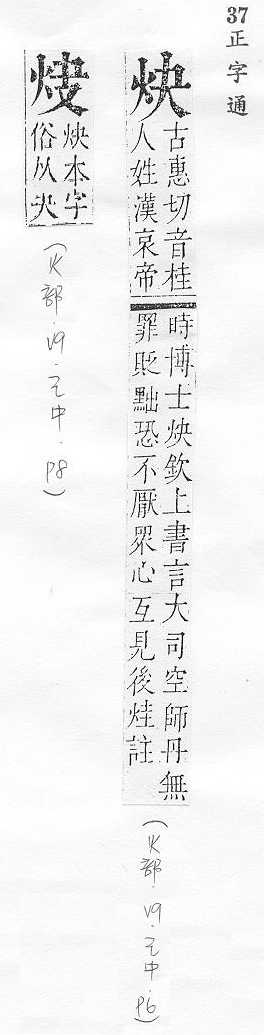 37 正字通
炔
古惠切音桂
人姓漢哀帝
時博士炔欽上書言大司空師丹無
罪貶黜恐不厭眾心互見後烓註
(火部.V9.之中.P6)
炔本字
俗以夬
(火部.V9.之中.P8)